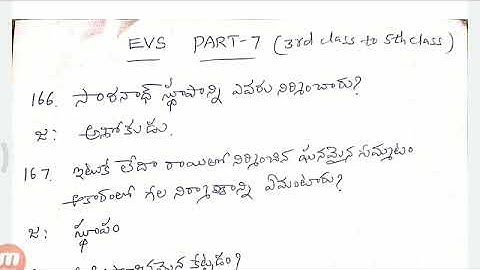 EVS PART-7 (3rd class to 5th class)
166. సారనాథ్ స్థూపాన్ని ఎవరు నిర్మించారు?
జ: అశోకుడు.
167. ఇటుక లేదా రాయితో నిర్మించిన ఘనమైన సమ్మటం
ఆకారంలో గల నిర్మాణాన్ని ఏమంటారు?
జ: స్థూపం